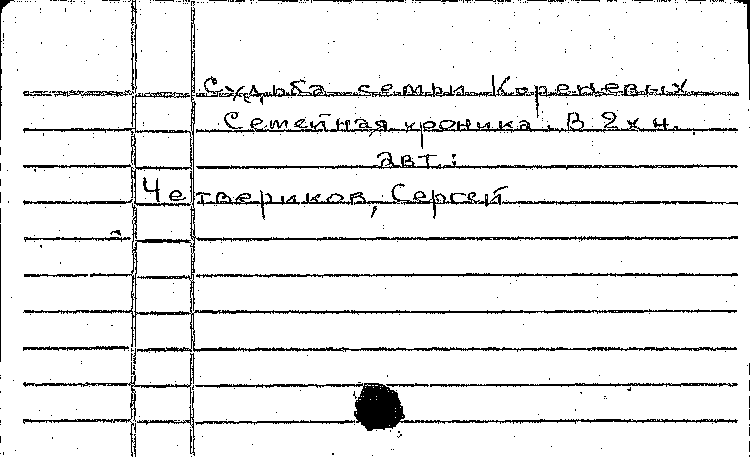 Судьба семьи Кореневых
Семейная хроника. В 2х н.
авт.:
Четвериков, Сергей